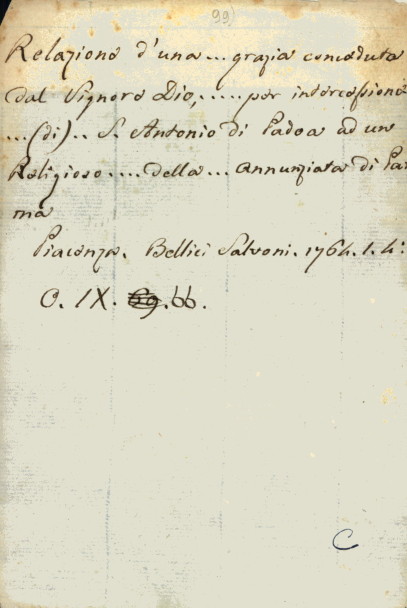 99)
Relazione d'una ... grazia conceduta
dal Signore Dio, ..... per intercessione
... (di) .. S. Antonio di Padoa ad un
Religioso .... della ... Annunziata di Par
ma
Piacenza. Bellici Salvoni. 1764. 1. 4:
C. IX. 69. 66.
C